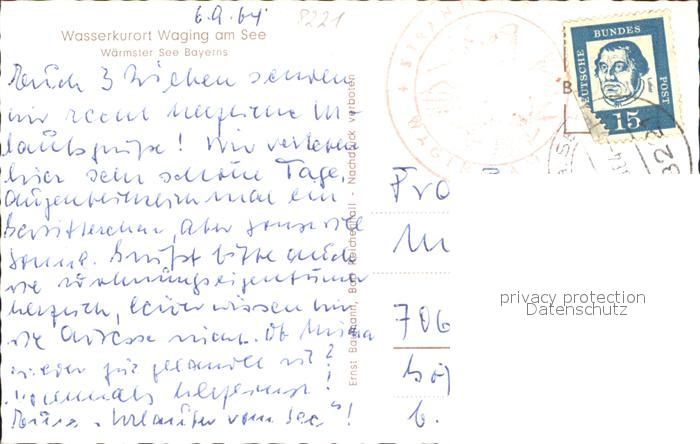 6.9.64 8221
Wasserkurort Waging am See
Wärmster See Bayerns
Euch 3 Lieben senden
wir recht herzliche Ur
laubsgrüße! Wir verleben
hier sehr schöne Tage.
Augenblicklich mal ein
Gewitterschauer, aber sonst viel
Sonne. Grüßt bitte auch
die Wohnungseigentümer
herzlich, leider wissen wir
die Adresse nicht. Ob
wieder gut gelandet ist?
Nochmals herzlichst!
Eure "Urlauber vom See"!
Ernst Baumann, Bad Reichenhall - Nachdruck verboten
DEUTSCHE BUNDES POST
15
Fr
706
privacy protection
Datenschutz